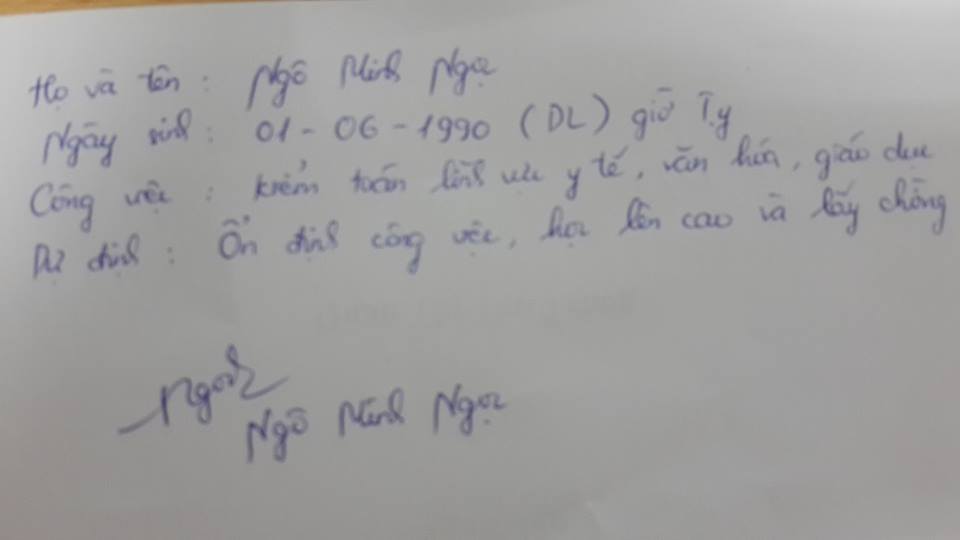 Họ và tên : Ngô Minh Ngọc
Ngày sinh : 01 - 06 - 1990 (DL) giờ Tỵ
Công việc : kiểm toán lĩnh vực y tế, văn hóa, giáo dục
Dự định : Ổn định công việc, học lên cao và lấy chồng
Ngọc
Ngô Minh Ngọc